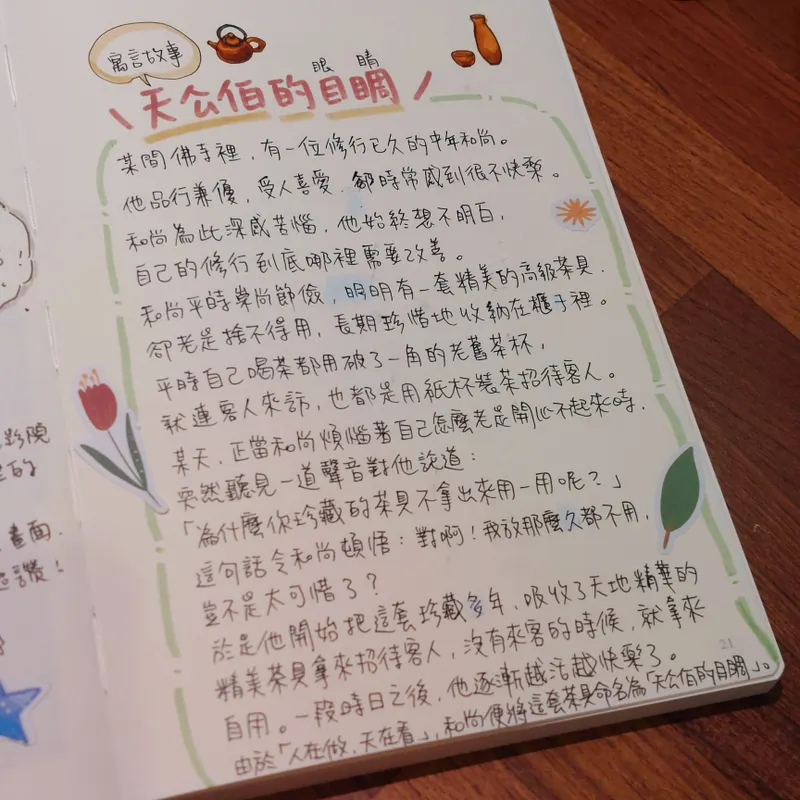 寓言故事
眼睛
天公伯的目睭
某間佛寺裡，有一位修行已久的中年和尚。
他品行兼優，受人喜愛，卻時常感到很不快樂。
和尚為此深感苦惱，他始終想不明白，
自己的修行到底哪裡需要改善。
和尚平時崇尚節儉，明明有一套精美的高級茶具，
卻老是捨不得用，長期珍惜地收納在櫃子裡。
平時自己喝茶都用破了一角的老舊茶杯，
就連客人來訪，也都是用紙杯裝茶招待客人。
某天，正當和尚煩惱著自己怎麼老是開心不起來時，
突然聽見一道聲音對他說道：
「為什麼你珍藏的茶具不拿出來用一用呢？」
這句話令和尚頓悟：對啊！我放那麼久都不用，
豈不是太可惜了？
於是他開始把這套珍藏多年，吸收了天地精華的
精美茶具拿來招待客人，沒有來客的時候，就拿來
自用。一段時日之後，他逐漸越活越快樂了。
由於「人在做，天在看」，和尚便將這套茶具命名為「天公伯的目睭」。
21
影院
的
畫面，
讚！